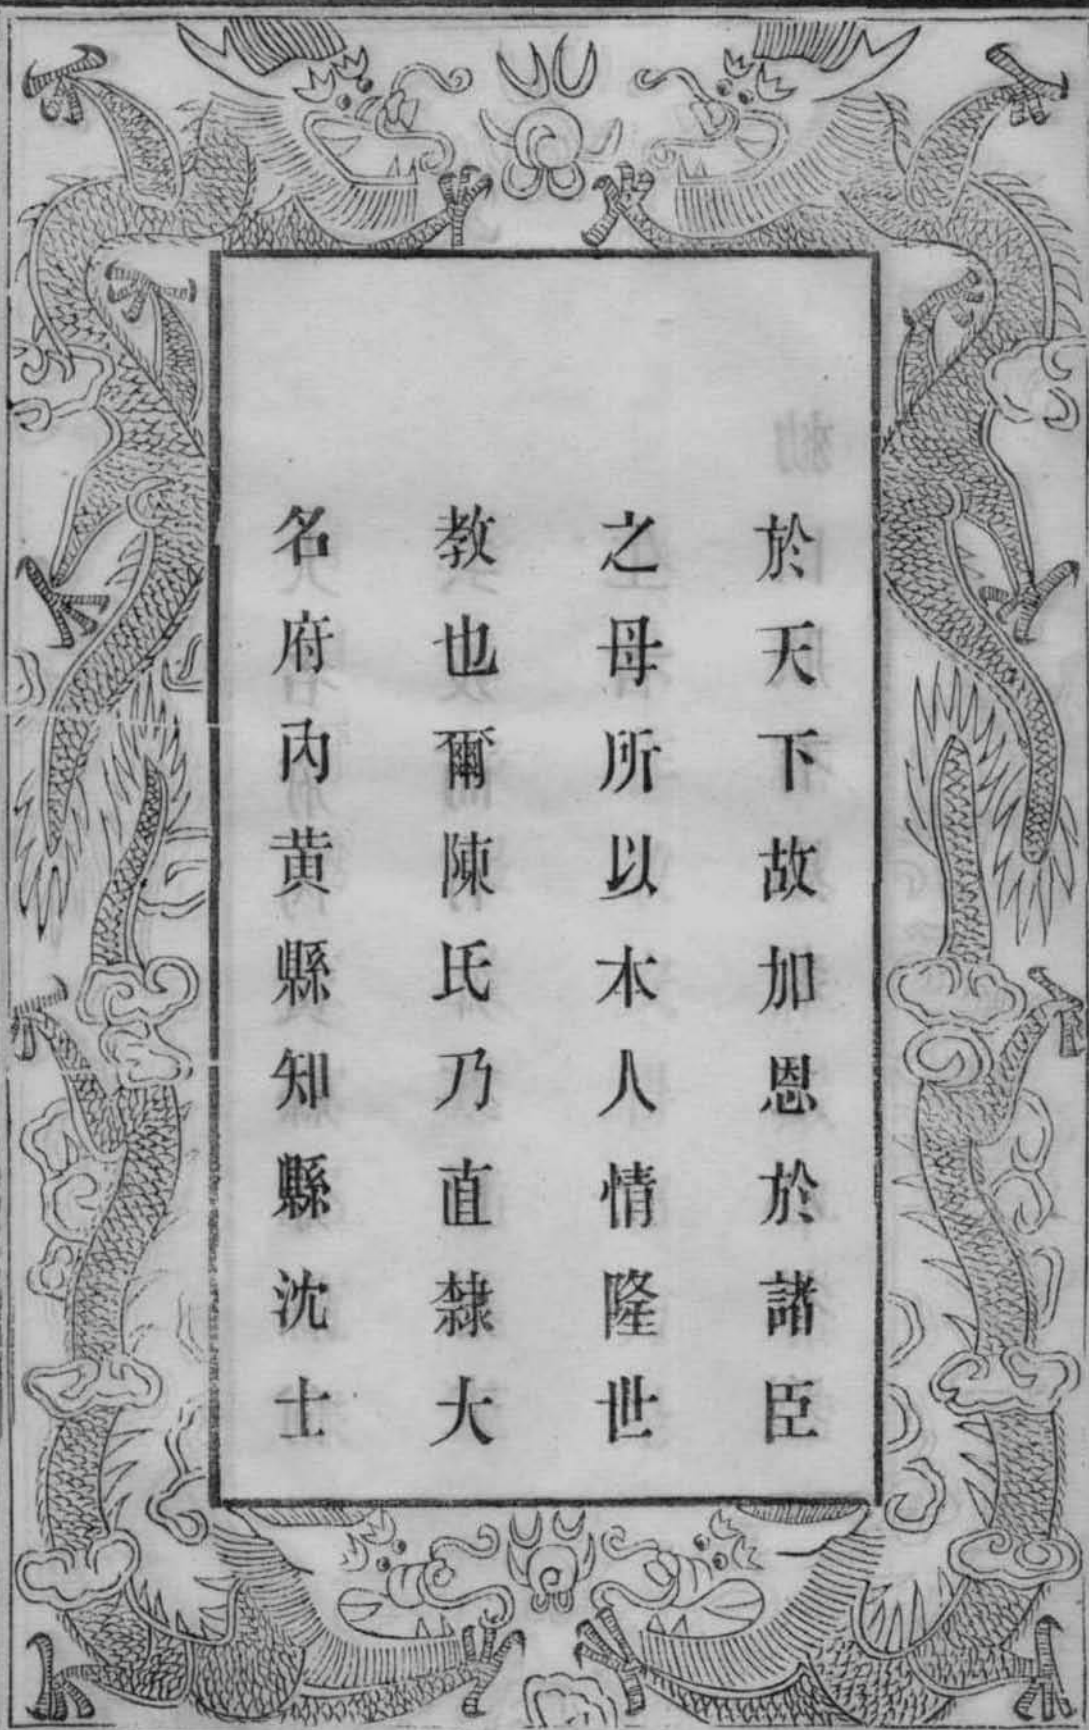 於天下故加恩於諸臣
之母所以本人情隆世
教也爾陳氏乃直隸大
名府內黄縣知縣沈士